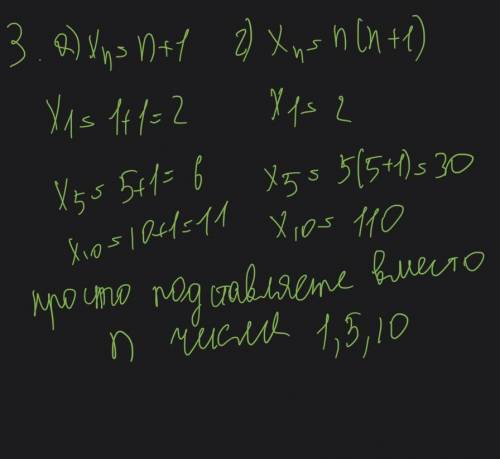 3. а) xn = n+1 г) xn = n(n+1)
x1 = 1+1 = 2 x1 = 2
x5 = 5+1 = 6 x5 = 5(5+1) = 30
x10 = 10+1 = 11 x10 = 110
просто подставляете вместо
n числа 1,5,10